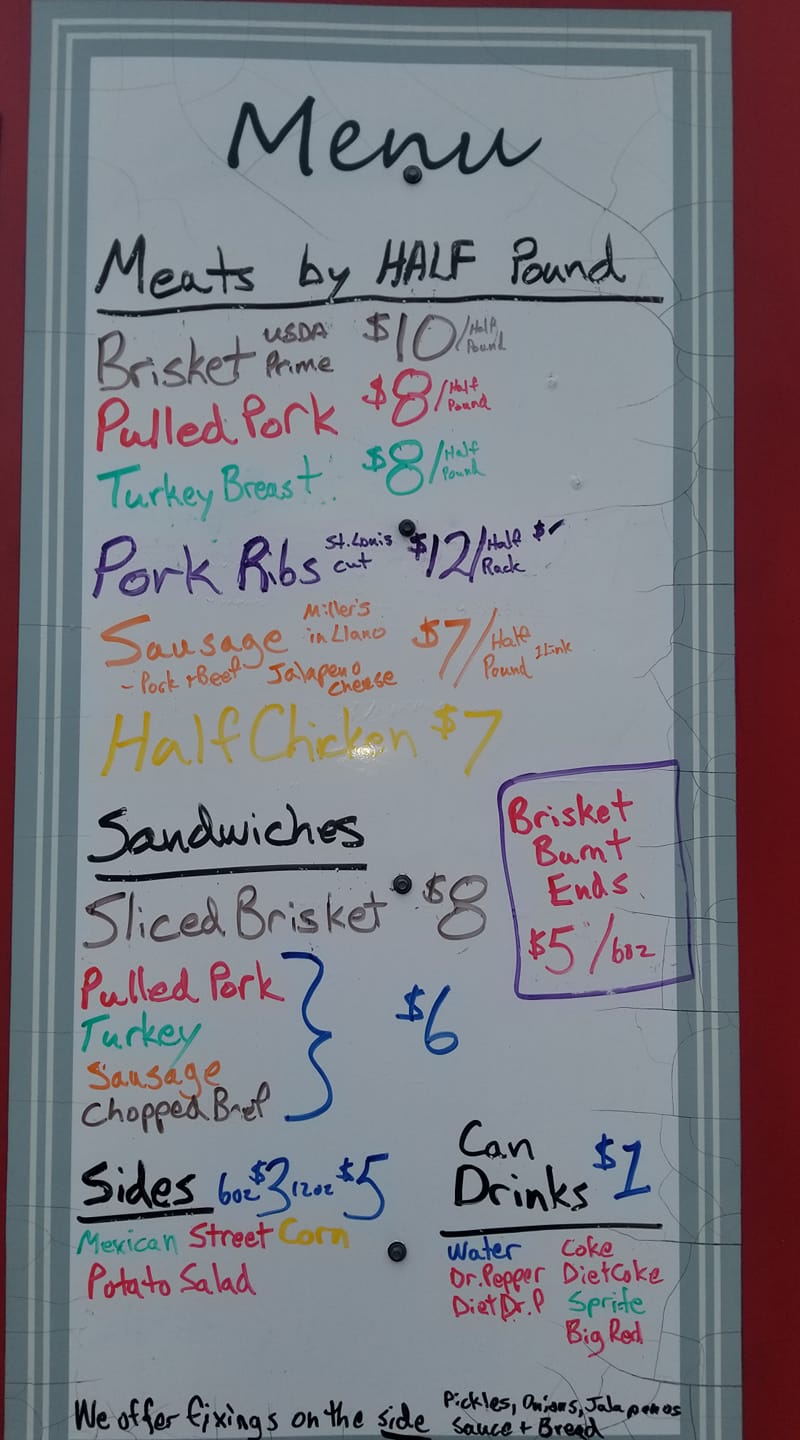 Menu
Meats by HALF Pound
Brisket USDA Prime $10/Half Pound
Pulled Pork $8/Half Pound
Turkey Breast $8/Half Pound
Pork Ribs St. Louis cut $12/Half Rack $
Sausage Miller's in Llano $7/Half Pound 1 Link
- Pork + Beef Jalapeno Cheese
Half Chicken $7
Brisket
Burnt
Ends
$5/6oz
Sandwiches
Sliced Brisket $8
Pulled Pork
Turkey
Sausage
Chopped Beef
$6
Sides 6oz $3 12oz $5
Mexican Street Corn
Potato Salad
Can
Drinks $1
Water Coke
Dr. Pepper Diet Coke
Diet Dr. P Sprite
Big Red
We offer fixings on the side Pickles, Onions, Jalapenos
Sauce + Bread